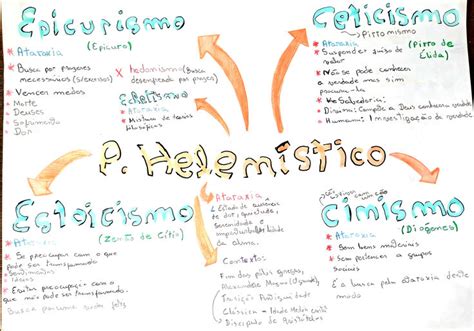 Epicurismo
(Epicuro)
* Ataraxia
* Busca por prazeres
necessários (s/excesso)
X hedonismo (Busca
desenfreada por prazer)
* Vencer medos
- Morte
- Deuses
- Sofrimento
- Dor
Ecletismo
* Ataraxia
* Mistura de teorias
filosóficas
Ceticismo
Pirronismo
* Ataraxia
(Pirro de
Élida)
* Suspender juízo de
valor
* Não se pode conhecer
a verdade mas sim
procura-la
* Ne Salvedoria:
- Divina: Compõe a Deus conhecer a verdade
- Humana: Investigação da verdade
P. Helemístico
Estoicismo
* Ataraxia
(Zenão de Cítio)
* Se preocupar com o que
pode ser transformado
- Sentimentos
- Ideias
* Evitar preocupação com o
que não pode ser transformado.
Busca
* Ataraxia
Estado de ausência
de dor, quietude,
serenidade e
imperturbabilidade
da alma.
* Contexto:
Fim das pólis gregas,
Alexandre Magno (O grande)
* Transição Antiguidade
Clássica - Idade Média
Discípulo de Aristóteles
Cinismo
(Diógenes)
* Ataraxia
* Sem bens materiais
* Sem pertences a grupos
sociais
* É a busca pela ataraxia deste
modo